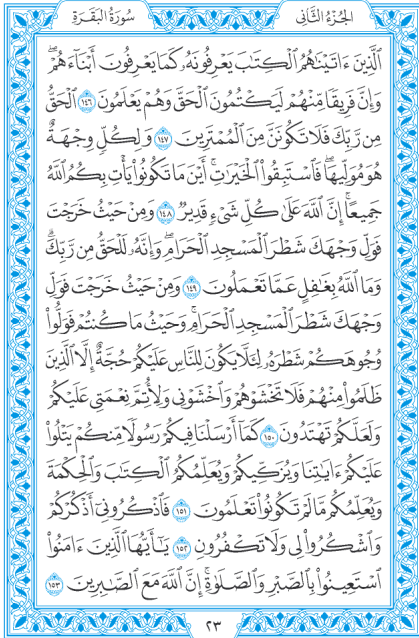 الجُزْءُ الثَّانِي
سُورَةُ البَقَرَةِ
الَّذِينَ ءَاتَيْنَٰهُمُ الْكِتَٰبَ يَعْرِفُونَهُۥ كَمَا يَعْرِفُونَ أَبْنَآءَهُمْ ۖ
وَإِنَّ فَرِيقًا مِّنْهُمْ لَيَكْتُمُونَ الْحَقَّ وَهُمْ يَعْلَمُونَ ١٤٦ الْحَقُّ
مِن رَّبِّكَ فَلَا تَكُونَنَّ مِنَ الْمُمْتَرِينَ ١٤٧ وَلِكُلٍّ وِجْهَةٌ
هُوَ مُوَلِّيهَا ۖ فَاسْتَبِقُوا۟ الْخَيْرَٰتِ ۚ أَيْنَ مَا تَكُونُوا۟ يَأْتِ بِكُمُ اللَّهُ
جَمِيعًا ۚ إِنَّ اللَّهَ عَلَىٰ كُلِّ شَىْءٍ قَدِيرٌ ١٤٨ وَمِنْ حَيْثُ خَرَجْتَ
فَوَلِّ وَجْهَكَ شَطْرَ الْمَسْجِدِ الْحَرَامِ ۖ وَإِنَّهُۥ لَلْحَقُّ مِن رَّبِّكَ ۗ
وَمَا اللَّهُ بِغَٰفِلٍ عَمَّا تَعْمَلُونَ ١٤٩ وَمِنْ حَيْثُ خَرَجْتَ فَوَلِّ
وَجْهَكَ شَطْرَ الْمَسْجِدِ الْحَرَامِ ۚ وَحَيْثُ مَا كُنتُمْ فَوَلُّوا۟
وُجُوهَكُمْ شَطْرَهُۥ لِئَلَّا يَكُونَ لِلنَّاسِ عَلَيْكُمْ حُجَّةٌ إِلَّا الَّذِينَ
ظَلَمُوا۟ مِنْهُمْ فَلَا تَخْشَوْهُمْ وَاخْشَوْنِى وَلِأُتِمَّ نِعْمَتِى عَلَيْكُمْ
وَلَعَلَّكُمْ تَهْتَدُونَ ١٥٠ كَمَآ أَرْسَلْنَا فِيكُمْ رَسُولًا مِّنكُمْ يَتْلُوا۟
عَلَيْكُمْ ءَايَٰتِنَا وَيُزَكِّيكُمْ وَيُعَلِّمُكُمُ الْكِتَٰبَ وَالْحِكْمَةَ
وَيُعَلِّمُكُم مَّا لَمْ تَكُونُوا۟ تَعْلَمُونَ ١٥١ فَاذْكُرُونِىٓ أَذْكُرْكُمْ
وَاشْكُرُوا۟ لِى وَلَا تَكْفُرُونِ ١٥٢ يَٰٓأَيُّهَا الَّذِينَ ءَامَنُوا۟
اسْتَعِينُوا۟ بِالصَّبْرِ وَالصَّلَوٰةِ ۚ إِنَّ اللَّهَ مَعَ الصَّٰبِرِينَ ١٥٣
٢٣